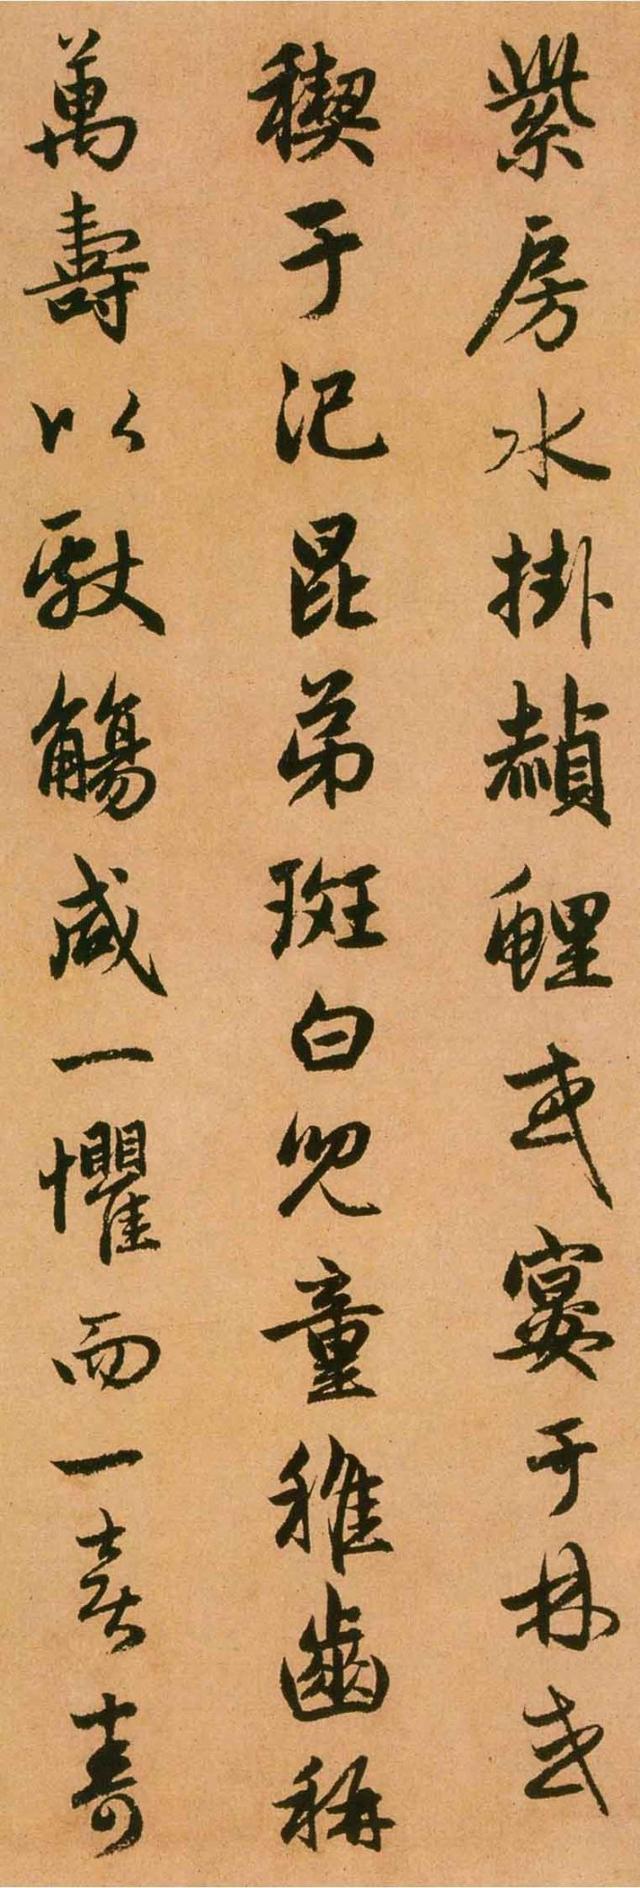 紫房水掛赬鯉或宴于林或
稧于汜昆弟斑白兒童稚齒稱
萬壽以獻觴咸一懼而一喜壽